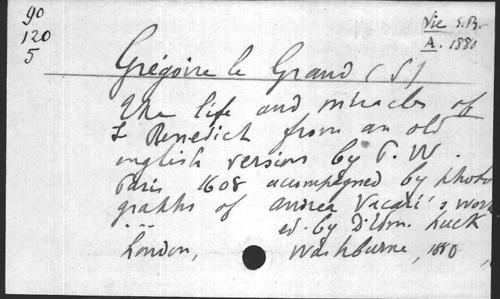 90
120
5
Vie S.B.
A. 1880
Grégoire le Grand (S)
The life and miracles of
S Benedict from an old
english version by P. W.
Paris 1608 accompagned by photo
graphs of Andrea Vacari's work
... ed. by D. Edm. Luck
London, Washburne, 1880,